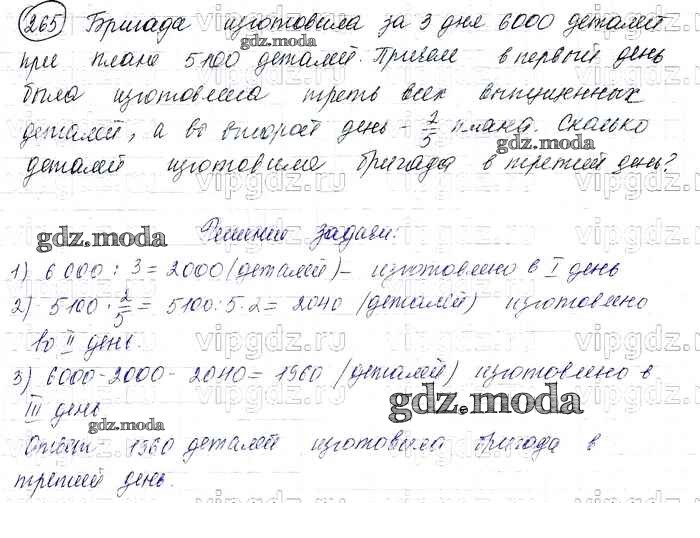 265 Бригада изготовила за 3 дня 6000 деталей
при плане 5100 деталей. Причем в первый день
была изготовлена треть всех выпущенных
деталей, а во второй день - 2/5 плана. Сколько
деталей изготовила бригада в третий день?
Решение задачи:
1) 6000 : 3 = 2000 (деталей) - изготовлено в I день
2) 5100 · 2/5 = 5100:5·2 = 2040 (деталей) изготовлено
во II день
3) 6000-2000-2040=1960 (деталей) изготовлено в
III день
Ответ: 1960 деталей изготовила бригада в
третий день.
gdz.moda
gdz.moda
gdz.moda
gdz.moda
gdz.moda
gdz.moda
vipgdz.ru